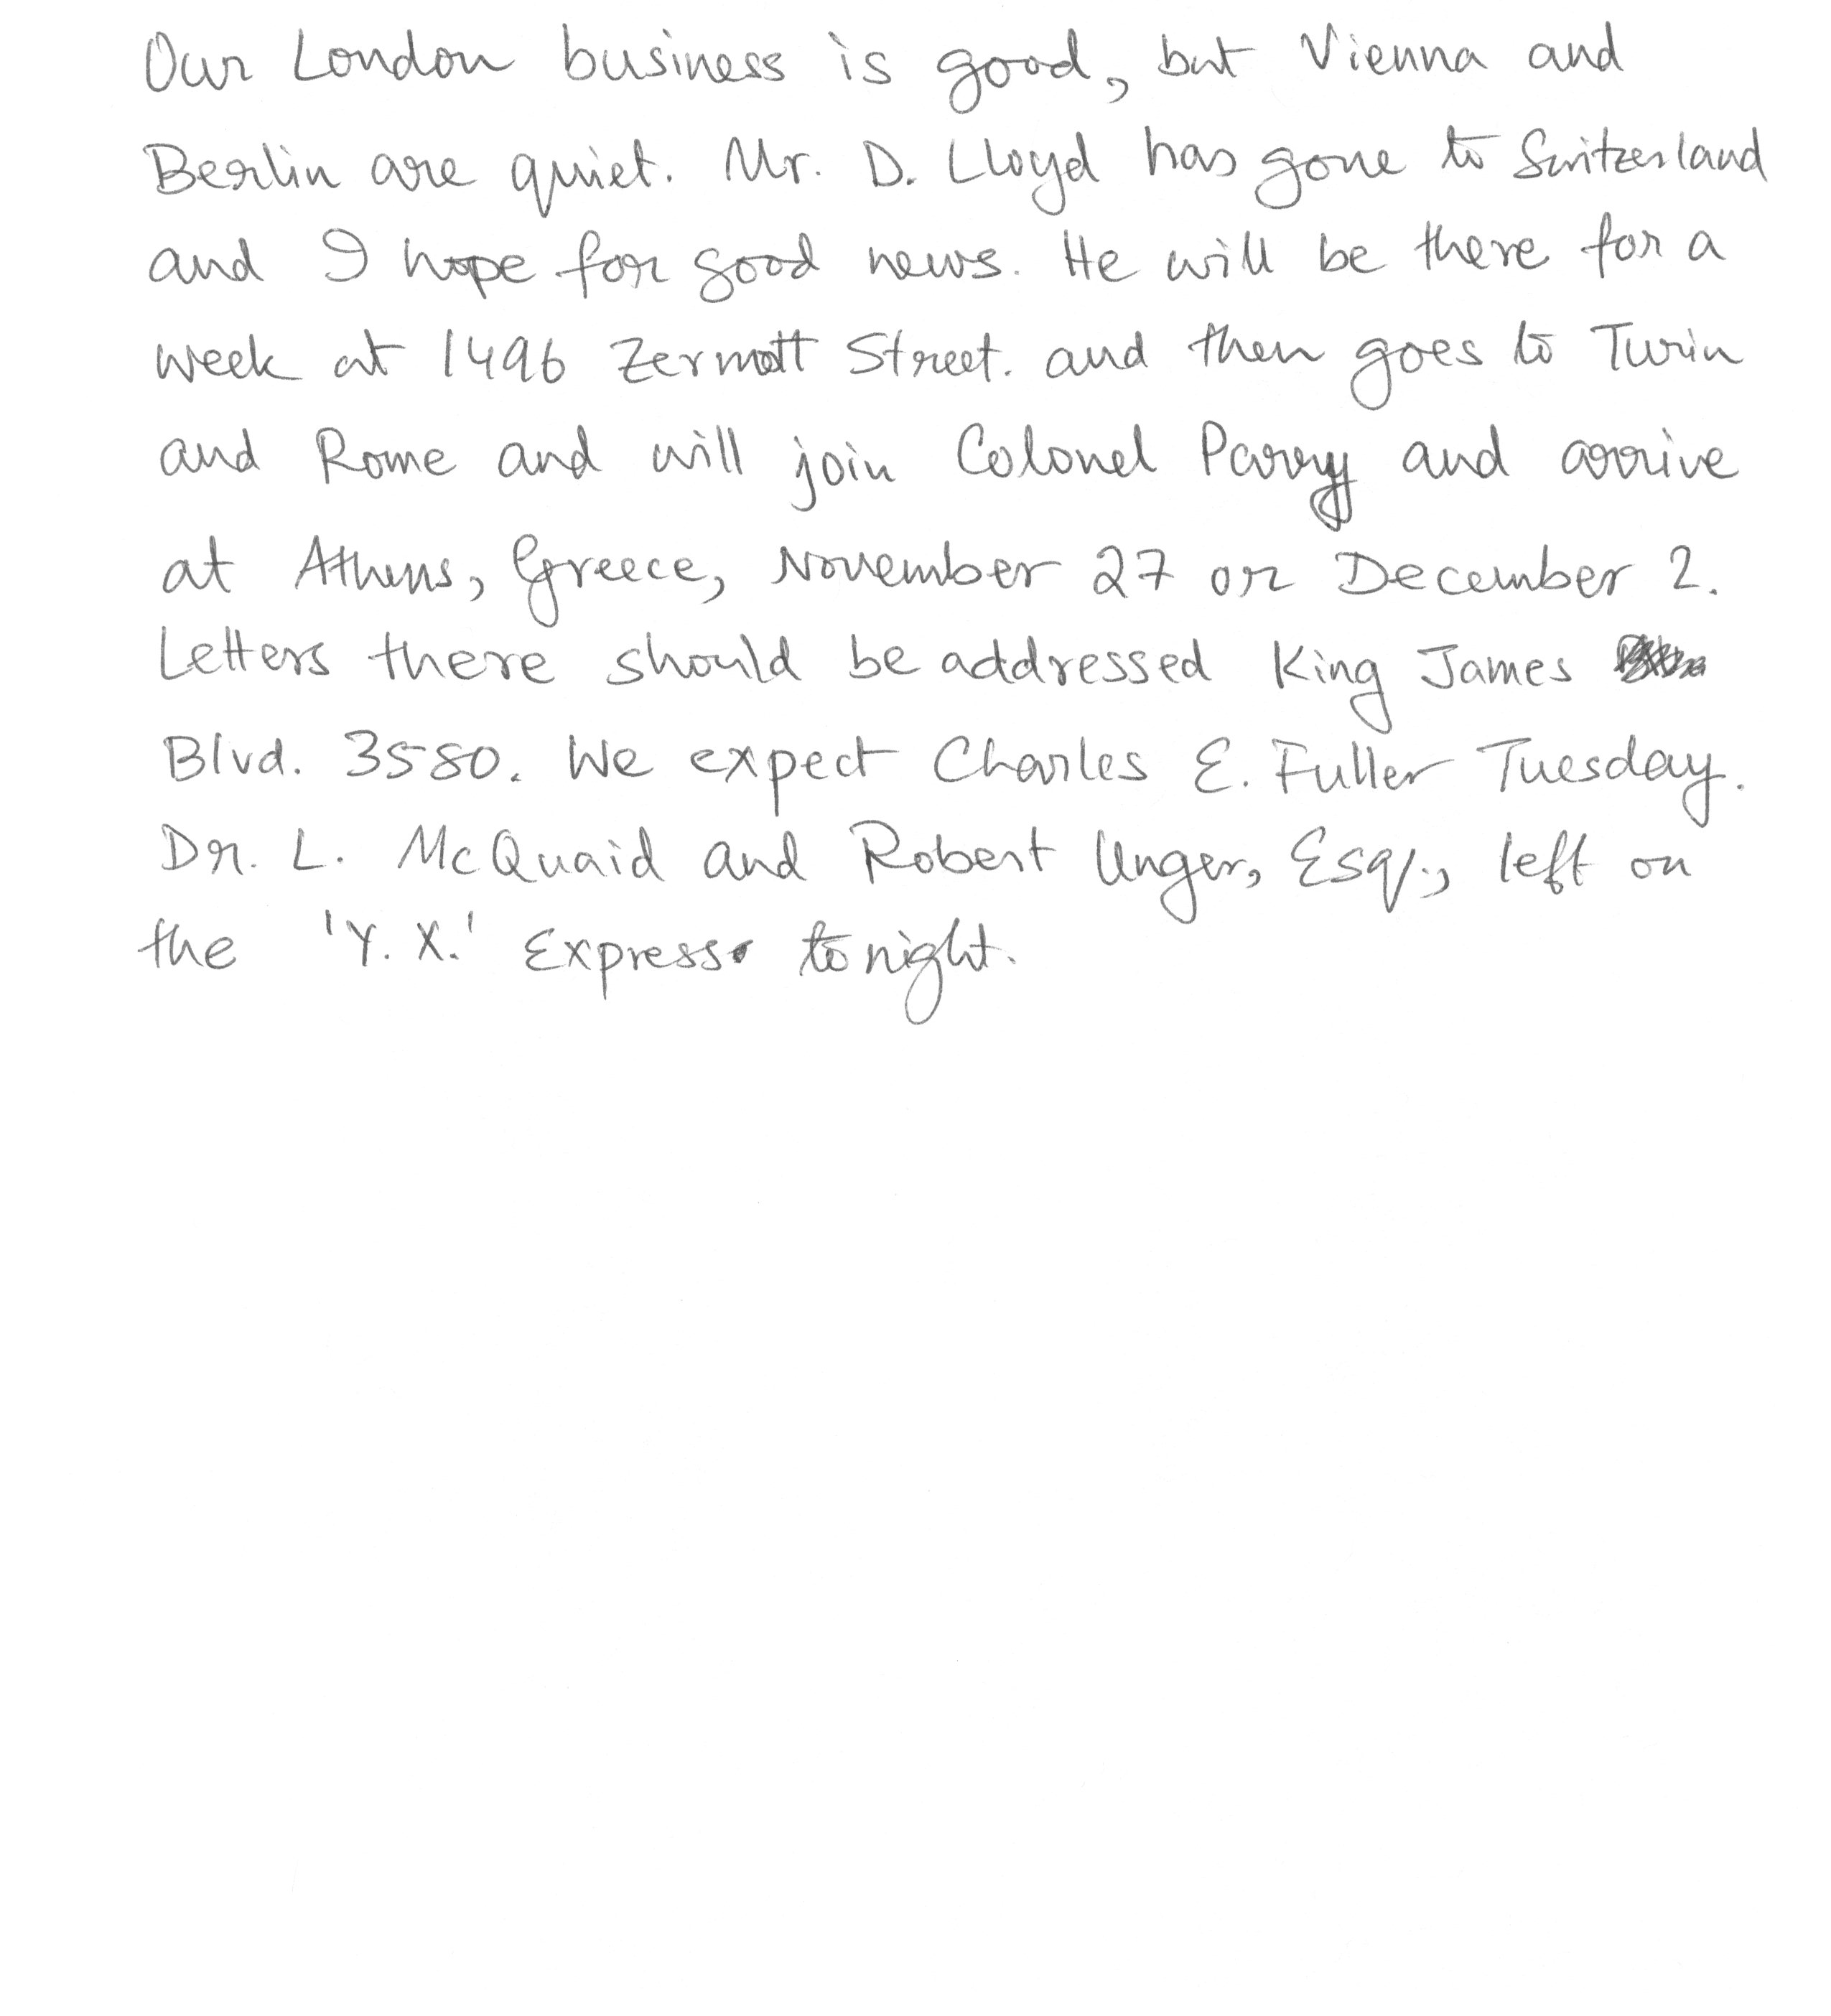 Our London business is good, but Vienna and
Berlin are quiet. Mr. D. Lloyd has gone to Switzerland
and I hope for good news. He will be there for a
week at 1496 Zermott Street. and then goes to Turin
and Rome and will join Colonel Parry and arrive
at Athens, Greece, November 27 or December 2.
Letters there should be addressed King James
Blvd. 3580. We expect Charles E. Fuller Tuesday.
Dr. L. McQuaid and Robert Unger, Esq., left on
the 'Y. X.' Express tonight.